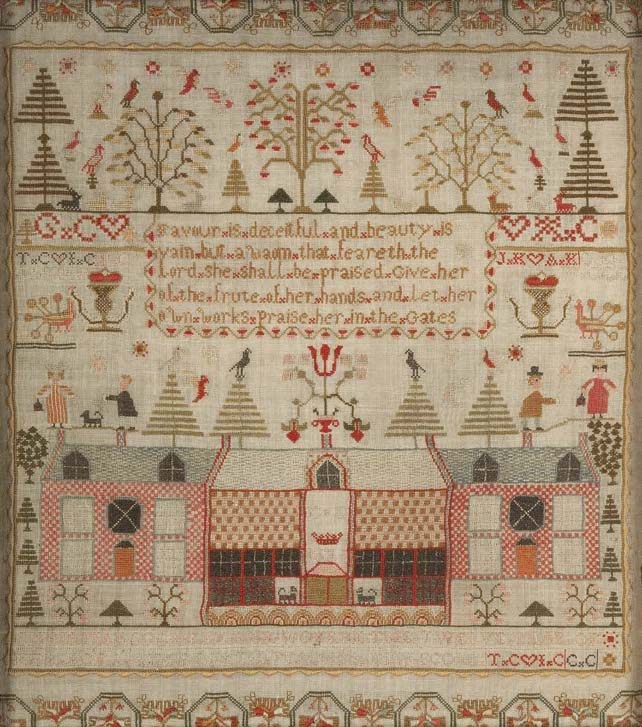 G×C♥ ♥×X×C
favour×is×deceitful×and×beauty×is
vain×but×a×waom×that×feareth×the
Lord×she×shall×be×praised×Give×her
of×the×frute×of×her×hands×and×let×her
own×works×praise×her×in×the×Gates
T×C♥I×C J×K♥A×K
T×C♥I×C|C×C